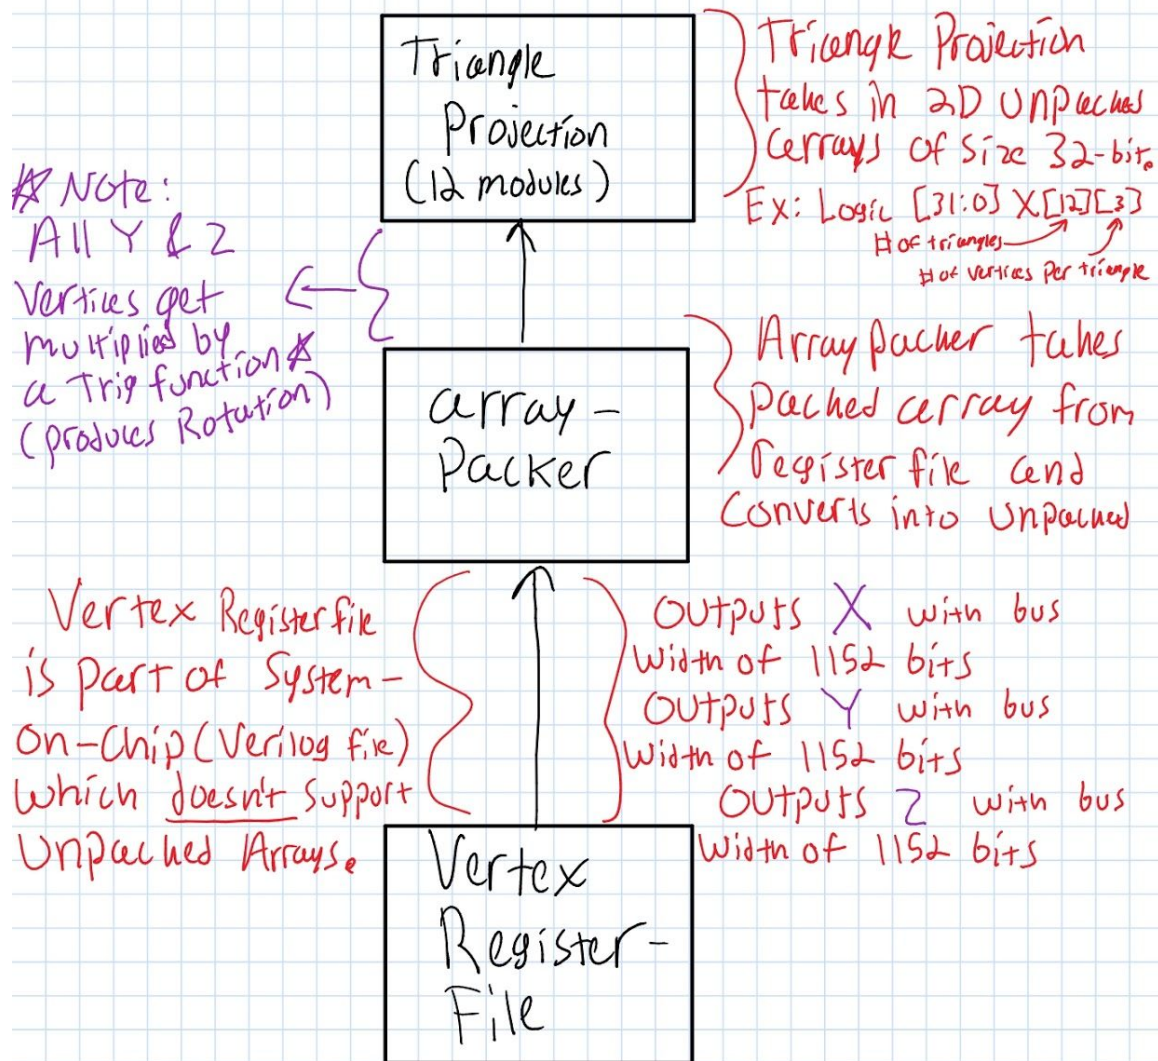 Triangle
Projection
(12 modules)
Triangle Projection
takes in 2D unpacked
arrays of size 32-bit.
Ex: Logic [31:0] X[12][3]
# of triangles
# of vertices per triangle
* Note:
All Y & Z
Vertices get
multiplied by
a Trig function *
(produces Rotation)
array-
Packer
Array packer takes
packed array from
register file and
converts into unpacked
Vertex Register file
is part of System-
On-Chip (Verilog file)
which doesn't support
Unpacked Arrays.
Outputs X with bus
width of 1152 bits
Outputs Y with bus
width of 1152 bits
Outputs Z with bus
width of 1152 bits
Vertex
Register-
File